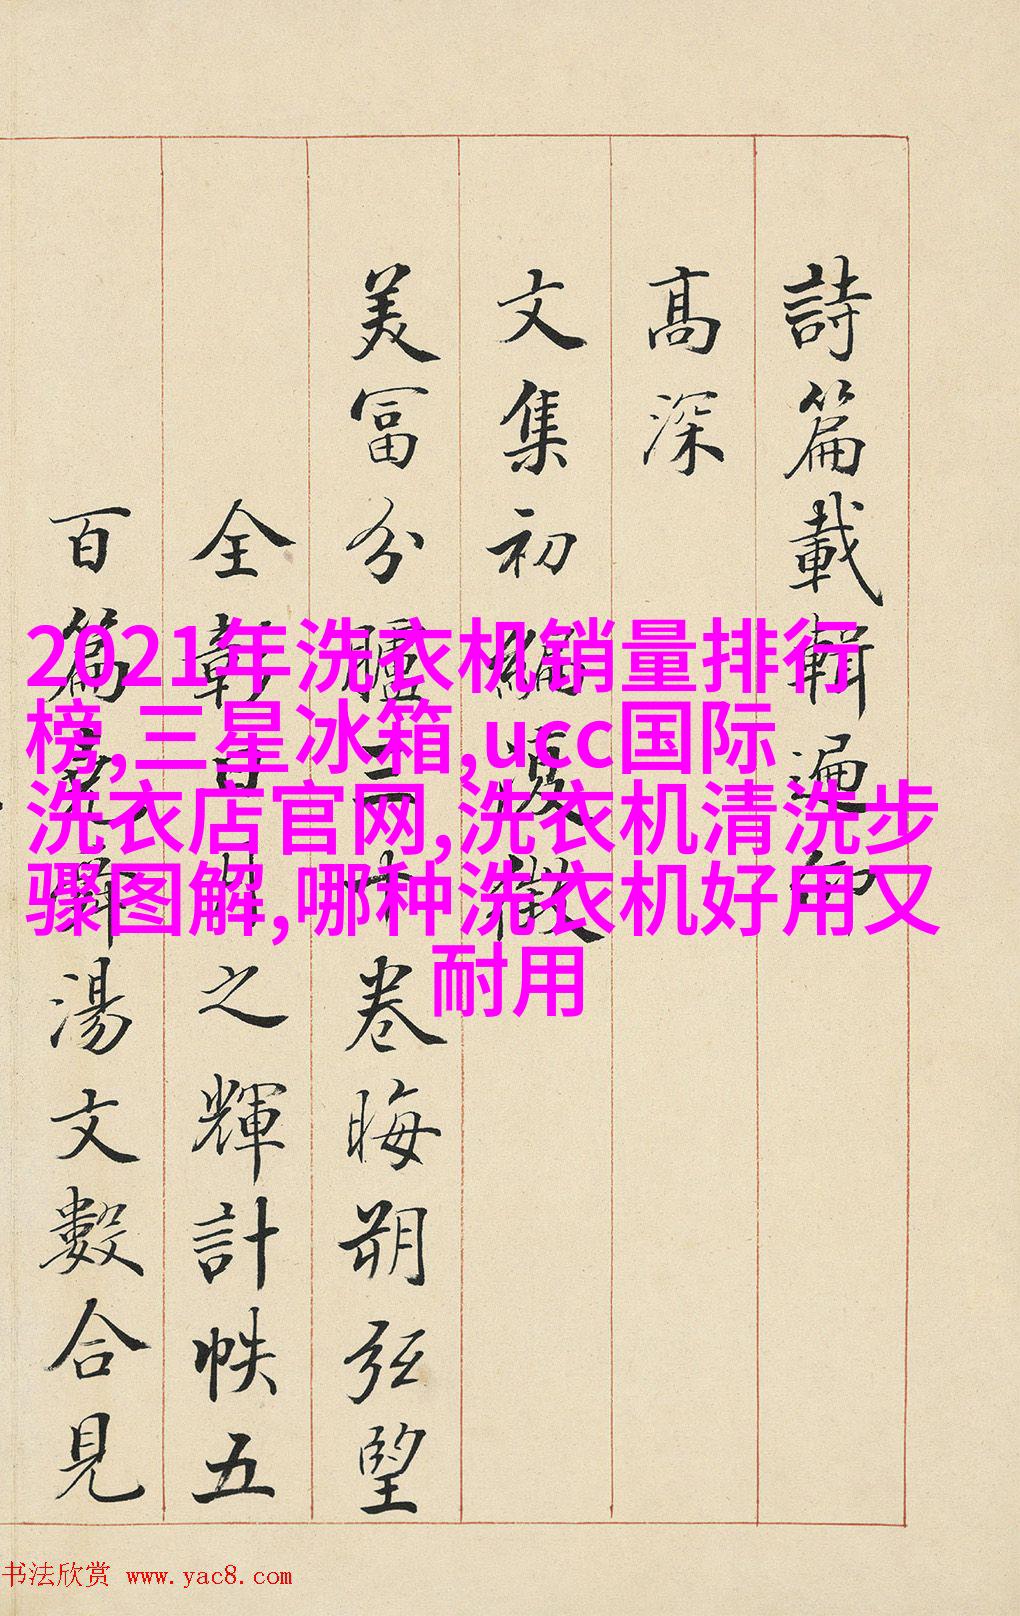 詩篇載輯遍
高深
文集初編
美富分臚三十卷晦朔弦望
全彰日月之輝計帙五
百篇湯文數合見
2021年洗衣机销量排行
榜,三星冰箱,ucc国际
洗衣店官网,洗衣机清洗步
骤图解,哪种洗衣机好用又
耐用
书法欣赏 www.yac8.com